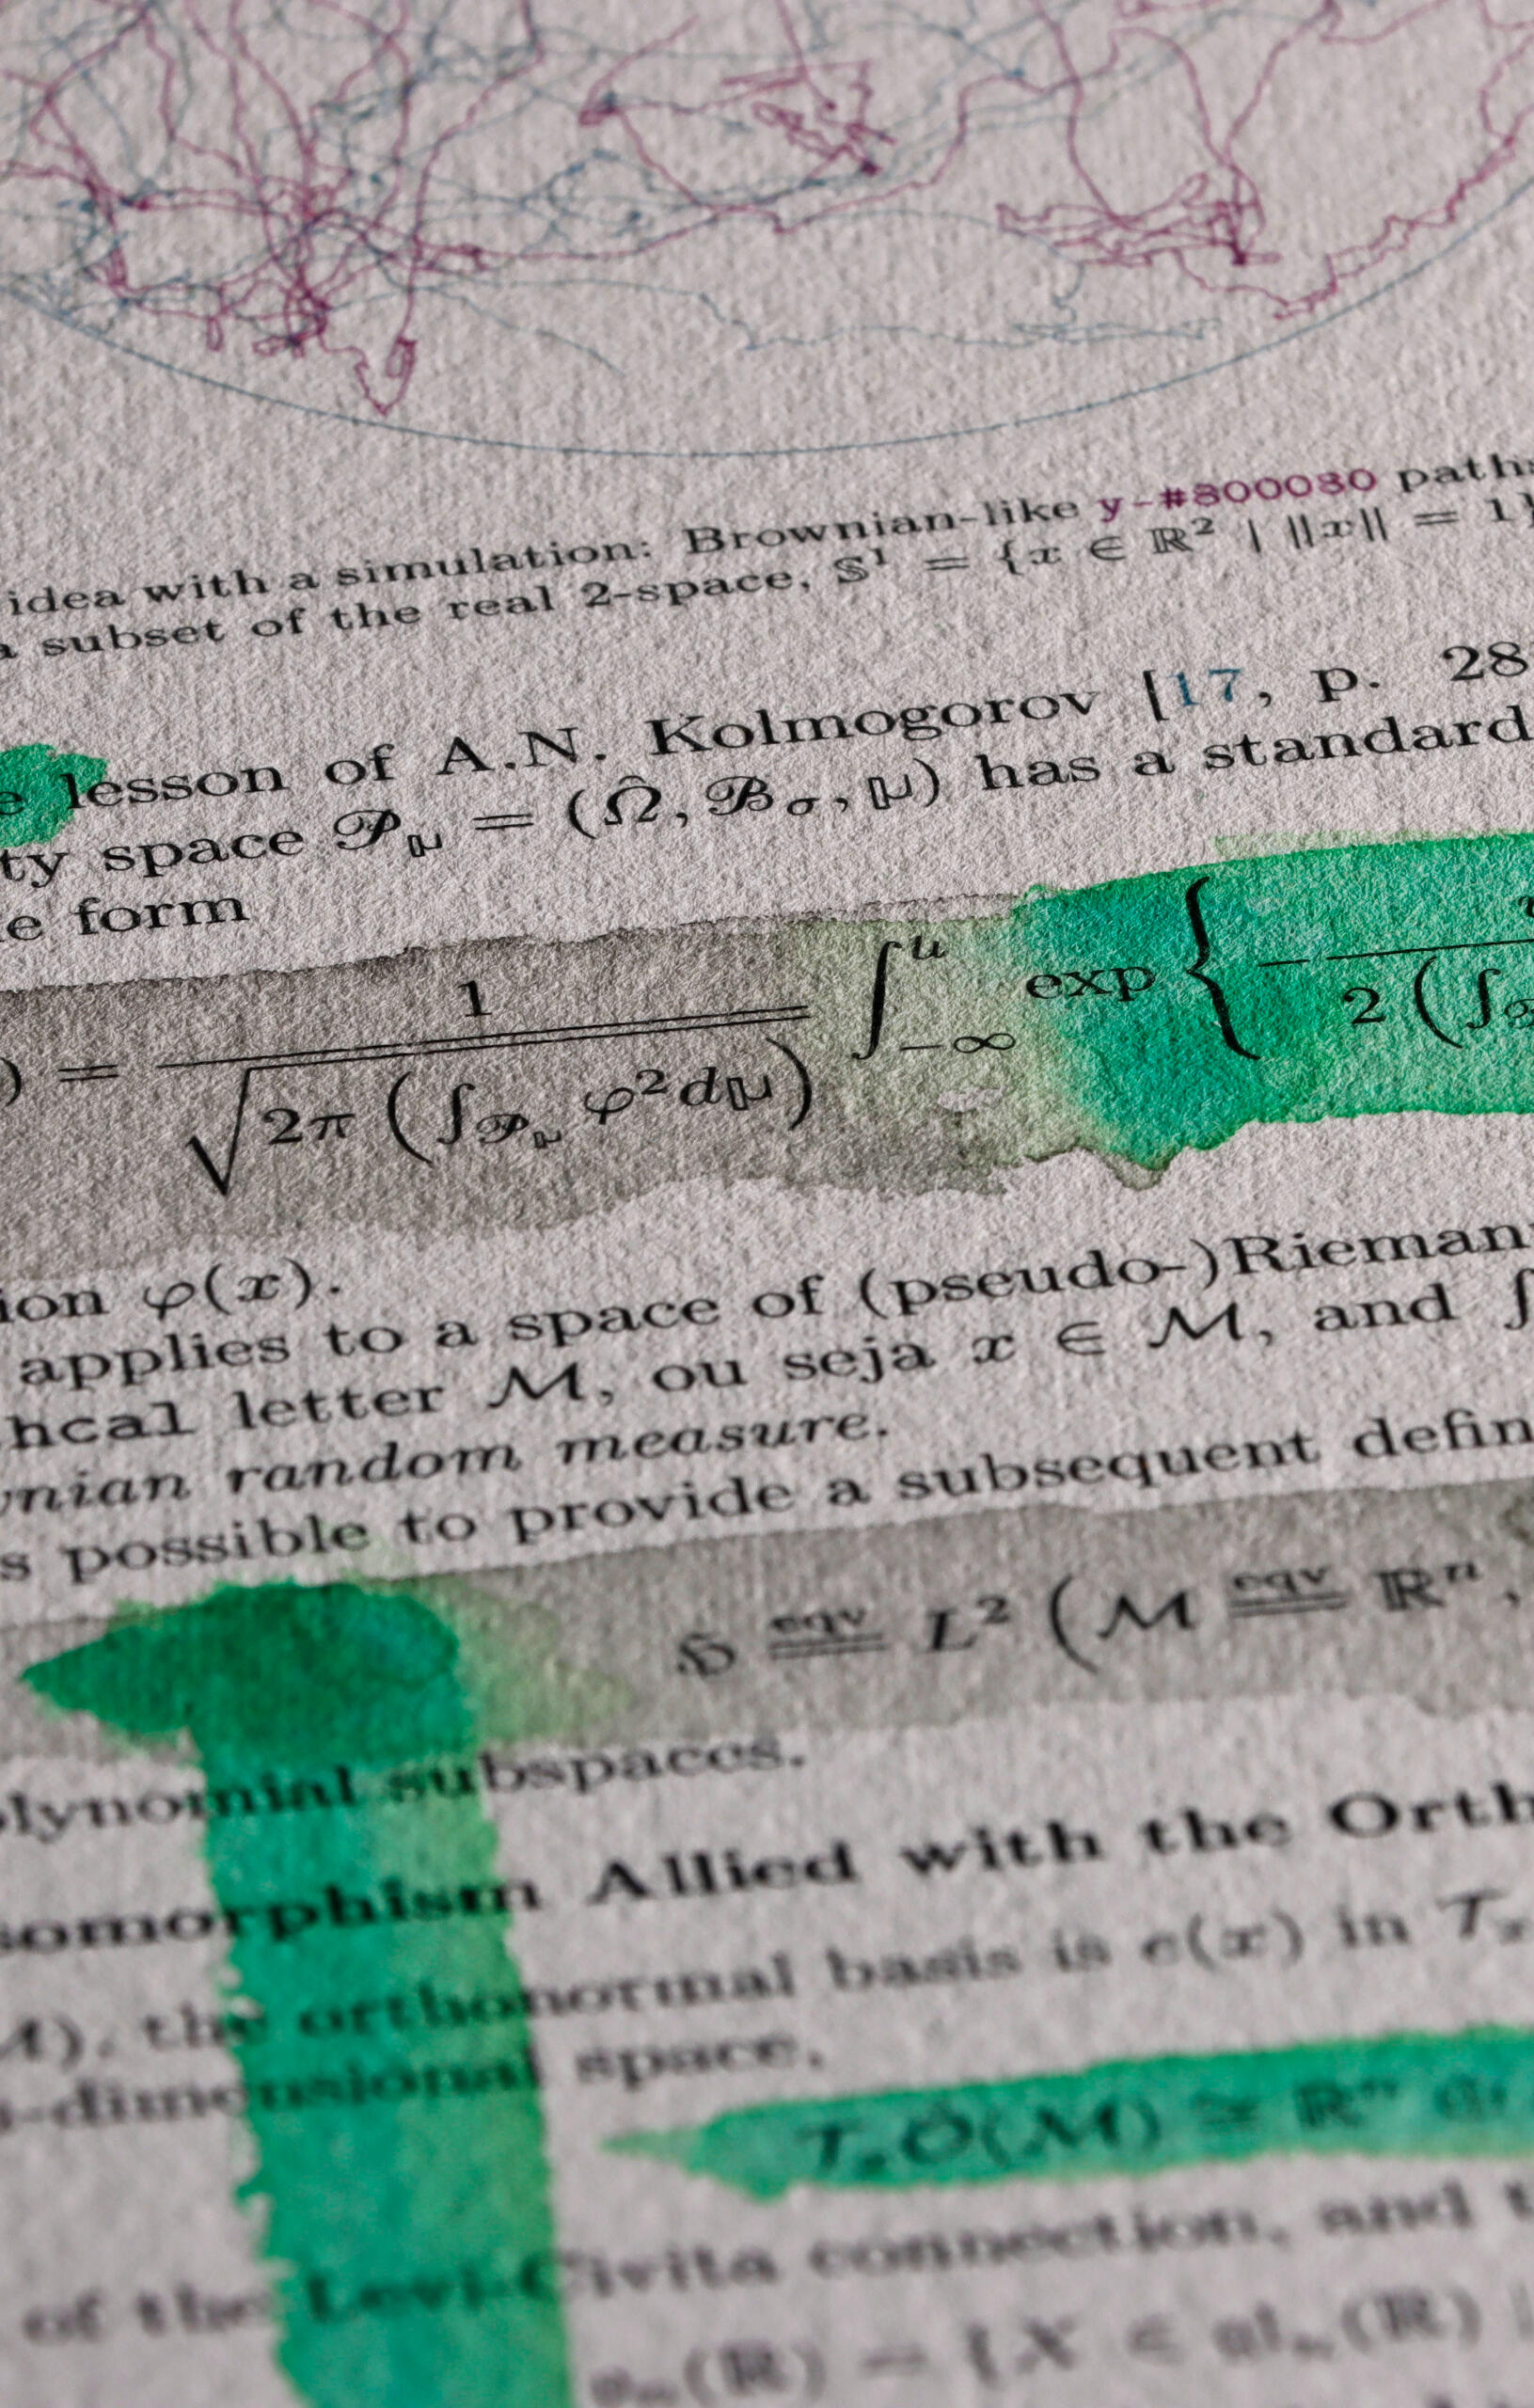 idea with a simulation: Brownian-like y-#800080 paths
a subset of the real 2-space, 𝕊¹ = {x ∈ ℝ² | ‖x‖ = 1}
lesson of A.N. Kolmogorov [17, p. 28
ty space 𝒫_μ = (Ω̂, ℬ_σ, μ) has a standard
e form
) = 1 / √(2π (∫_𝒫_μ φ²dμ)) ∫_{-∞}^{u} exp { - / 2 (∫
ion φ(x).
applies to a space of (pseudo-)Rieman
hcal letter ℳ, ou seja x ∈ ℳ, and ∫
nian random measure.
s possible to provide a subsequent defin
ℌ eqv L² (ℳ eqv ℝⁿ,
olynomial subspaces.
somorphism Allied with the Orth
the orthonormal basis is e(x) in 𝒯ₓ
-dimensional space,
𝒯ₓÓ(ℳ) ≅ ℝⁿ
of the Levi-Civita connection, and t
(ℝ) = {X ∈ 𝔤𝔩ₙ(ℝ) |